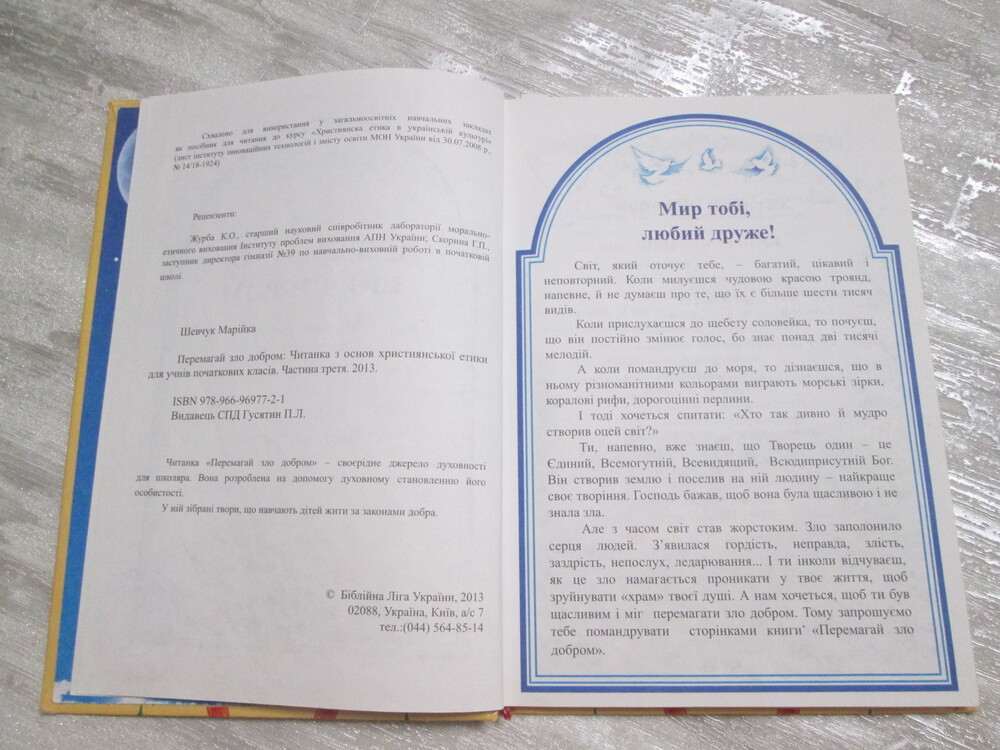 Схвалено для використання у загальноосвітніх навчальних закладах
як посібник для читання до курсу «Християнська етика в українській культурі»
(лист інституту інноваційних технологій і змісту освіти МОН України від 30.07.2008 р.,
№ 14/18-1924)
Рецензенти:
Журба К.О., старший науковий співробітник лабораторії морально-
етичного виховання Інституту проблем виховання АПН України; Скорина Г.П.,
заступник директора гімназії №39 по навчально-виховній роботі в початковій
школі.
Шевчук Марійка
Перемагай зло добром: Читанка з основ християнської етики
для учнів початкових класів. Частина третя. 2013.
ISBN 978-966-96977-2-1
Видавець СПД Гусятин П.Л.
Читанка «Перемагай зло добром» – своєрідне джерело духовності
для школяра. Вона розроблена на допомогу духовному становленню його
особистості.
У ній зібрані твори, що навчають дітей жити за законами добра.
© Біблійна Ліга України, 2013
02088, Україна, Київ, а/с 7
тел.:(044) 564-85-14
Мир тобі,
любий друже!
Світ, який оточує тебе, – багатий, цікавий і
неповторний. Коли милуєшся чудовою красою троянд,
напевне, й не думаєш про те, що їх є більше шести тисяч
видів.
Коли прислухаєшся до щебету соловейка, то почуєш,
що він постійно змінює голос, бо знає понад дві тисячі
мелодій.
А коли помандруєш до моря, то дізнаєшся, що в
ньому різноманітними кольорами виграють морські зірки,
коралові рифи, дорогоцінні перлини.
І тоді хочеться спитати: «Хто так дивно й мудро
створив оцей світ?»
Ти, напевно, вже знаєш, що Творець один – це
Єдиний, Всемогутній, Всевидящий, Всюдиприсутній Бог.
Він створив землю і поселив на ній людину – найкраще
своє творіння. Господь бажав, щоб вона була щасливою і не
знала зла.
Але з часом світ став жорстоким. Зло заполонило
серця людей. З’явилася гордість, неправда, злість,
заздрість, непослух, ледарювання... І ти інколи відчуваєш,
як це зло намагається проникати у твоє життя, щоб
зруйнувати «храм» твоєї душі. А нам хочеться, щоб ти був
щасливим і міг перемагати зло добром. Тому запрошуємо
тебе помандрувати сторінками книги’ «Перемагай зло
добром».